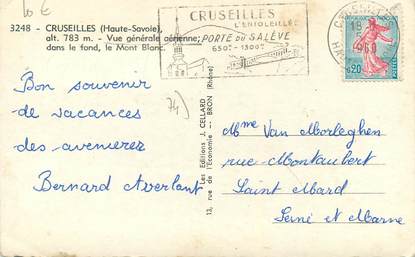 10 €
3248 - CRUSEILLES (Haute-Savoie),
alt. 783 m. - Vue générale aérienne;
dans le fond, le Mont Blanc.
CRUSEILLES
L'ENSOLEILLÉE
PORTE DU SALÈVE
650m - 1300m
CRUSEILLES
18
1960
0,20
Bon souvenir
de vacances
des avenieres
Bernard Averlant
74)
Les Editions J. CELLARD
13, rue de l'Economie - BRON (Rhône)
Mme Van Morleghen
rue Montaubert
Saint Mard
Seine et Marne